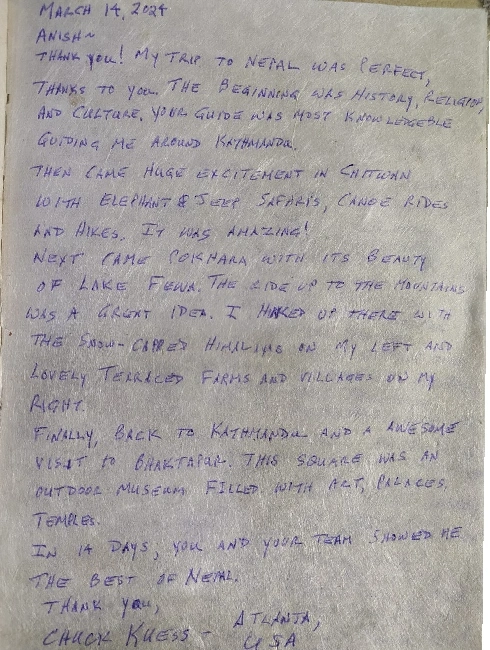 MARCH 14, 2024
ANISH~
THANK YOU! MY TRIP TO NEPAL WAS PERFECT,
THANKS TO YOU. THE BEGINNING WAS HISTORY, RELIGION,
AND CULTURE, YOUR GUIDE WAS MOST KNOWLEDGEBLE
GUIDING ME AROUND KATHMANDU.
THEN CAME HUGE EXCITEMENT IN CHITWAN
WITH ELEPHANT & JEEP SAFARIS, CANOE RIDES
AND HIKES. IT WAS AMAZING!
NEXT CAME POKHARA WITH ITS BEAUTY
OF LAKE FEWA. THE RIDE UP TO THE MOUNTAINS
WAS A GREAT IDEA. I HIKED UP THERE WITH
THE SNOW-CAPPED HIMALAYAS ON MY LEFT AND
LOVELY TERRACED FARMS AND VILLAGES ON MY
RIGHT.
FINALLY, BACK TO KATHMANDU AND A AWESOME
VISIT TO BHAKTAPUR. THIS SQUARE WAS AN
OUTDOOR MUSEUM FILLED WITH ART, PALACES,
TEMPLES.
IN 14 DAYS, YOU AND YOUR TEAM SHOWED ME
THE BEST OF NEPAL.
THANK YOU,
CHUCK KUESS - ATLANTA,
USA